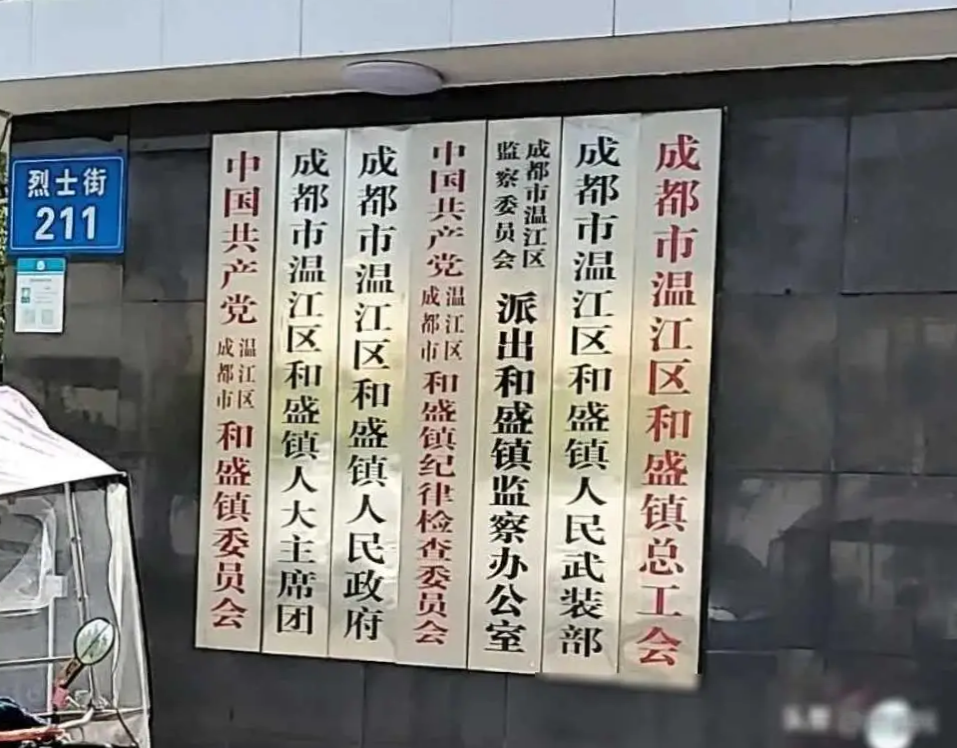 烈士街
211
中国共产党成都市温江区和盛镇委员会
成都市温江区和盛镇人大主席团
成都市温江区和盛镇人民政府
中国共产党成都市温江区和盛镇纪律检查委员会
成都市温江区监察委员会派出和盛镇监察办公室
成都市温江区和盛镇人民武装部
成都市温江区和盛镇总工会